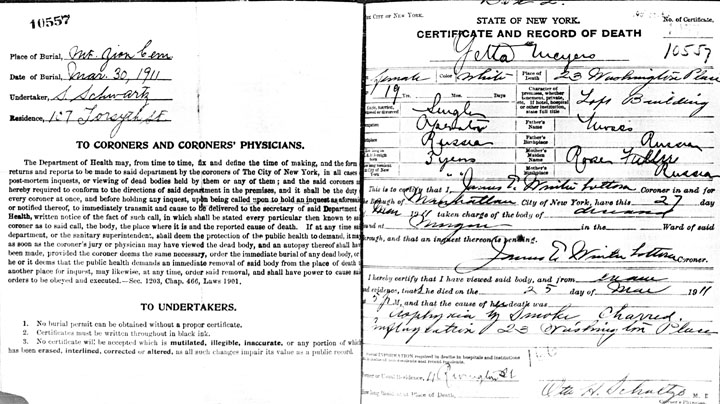 10557
Place of Burial, Mt. Zion Cem
Date of Burial, Mar. 30, 1911
Undertaker, S. Schwartz
Residence, 157 Forsyth St
TO CORONERS AND CORONERS' PHYSICIANS.
The Department of Health may, from time to time, fix and define the time of making, and the form
returns and reports to be made to said department by the coroners of The City of New York, in all cases of
post-mortem inquests, or viewing of dead bodies held by them or any of them; and the said coroners
hereby required to conform to the directions of said department in the premises, and it shall be the duty
every coroner at once, and before holding any inquest, upon being called upon to hold an inquest as aforesaid
or notified thereof, to immediately transmit and cause to be delivered to the secretary of said Department of
Health, written notice of the fact of such call, in which shall be stated every particular then known to said
coroner as to said call, the body, the place where it is and the reported cause of death. If at any time said
department, or the sanitary superintendent, shall deem the protection of the public health to demand, it may
as soon as the coroner's jury or physician may have viewed the dead body, and an autopsy thereof shall have
been made, provided the coroner deems the same necessary, order the immediate burial of any dead body, or
he or it deems that the public health demands an immediate removal of said body from the place of death to
another place for inquest, may likewise, at any time, order said removal, and shall have power to cause
orders to be obeyed and executed.—Sec. 1203, Chap. 466, Laws 1901.
TO UNDERTAKERS.
1. No burial permit can be obtained without a proper certificate.
2. Certificates must be written throughout in black ink.
3. No certificate will be accepted which is mutilated, illegible, inaccurate, or any portion of which
has been erased, interlined, corrected or altered, as all such changes impair its value as a public record.
THE CITY OF NEW YORK.
STATE OF NEW YORK.
No. of Certificate,
CERTIFICATE AND RECORD OF DEATH
Yetta Meyers
10557
female Color White Place of Death 23 Washington Place
19 Yrs. Mos. Days Character of premises, whether tenement, private, etc. If hotel, hospital or other institution, state full title Loft Building
Single
Operator Father's Name
Russia Father's Birthplace Russia
3 years Mother's Maiden Name Rose
Mother's Birthplace Russia
This is to certify that I, James E. Winterbottom Coroner in and for
Borough of Manhattan City of New York, have this 27 day
1911 taken charge of the body of deceased
found at Morgue in the Ward of said
Borough, and that an inquest thereon is pending.
James E. Winterbottom Coroner.
I hereby certify that I have viewed said body, and from
and evidence, that she died on the 25 day of Mar 1911
M., and that the cause of her death was
Asphyxia by Smoke, Charred.
Conflagration 23 Washington Place
Special INFORMATION required in deaths in hospitals and institutions
or Usual Residence, Rivington St
How long Resident at Place of Death,
Otto H. Schultze M. D.
Coroner's Physician.